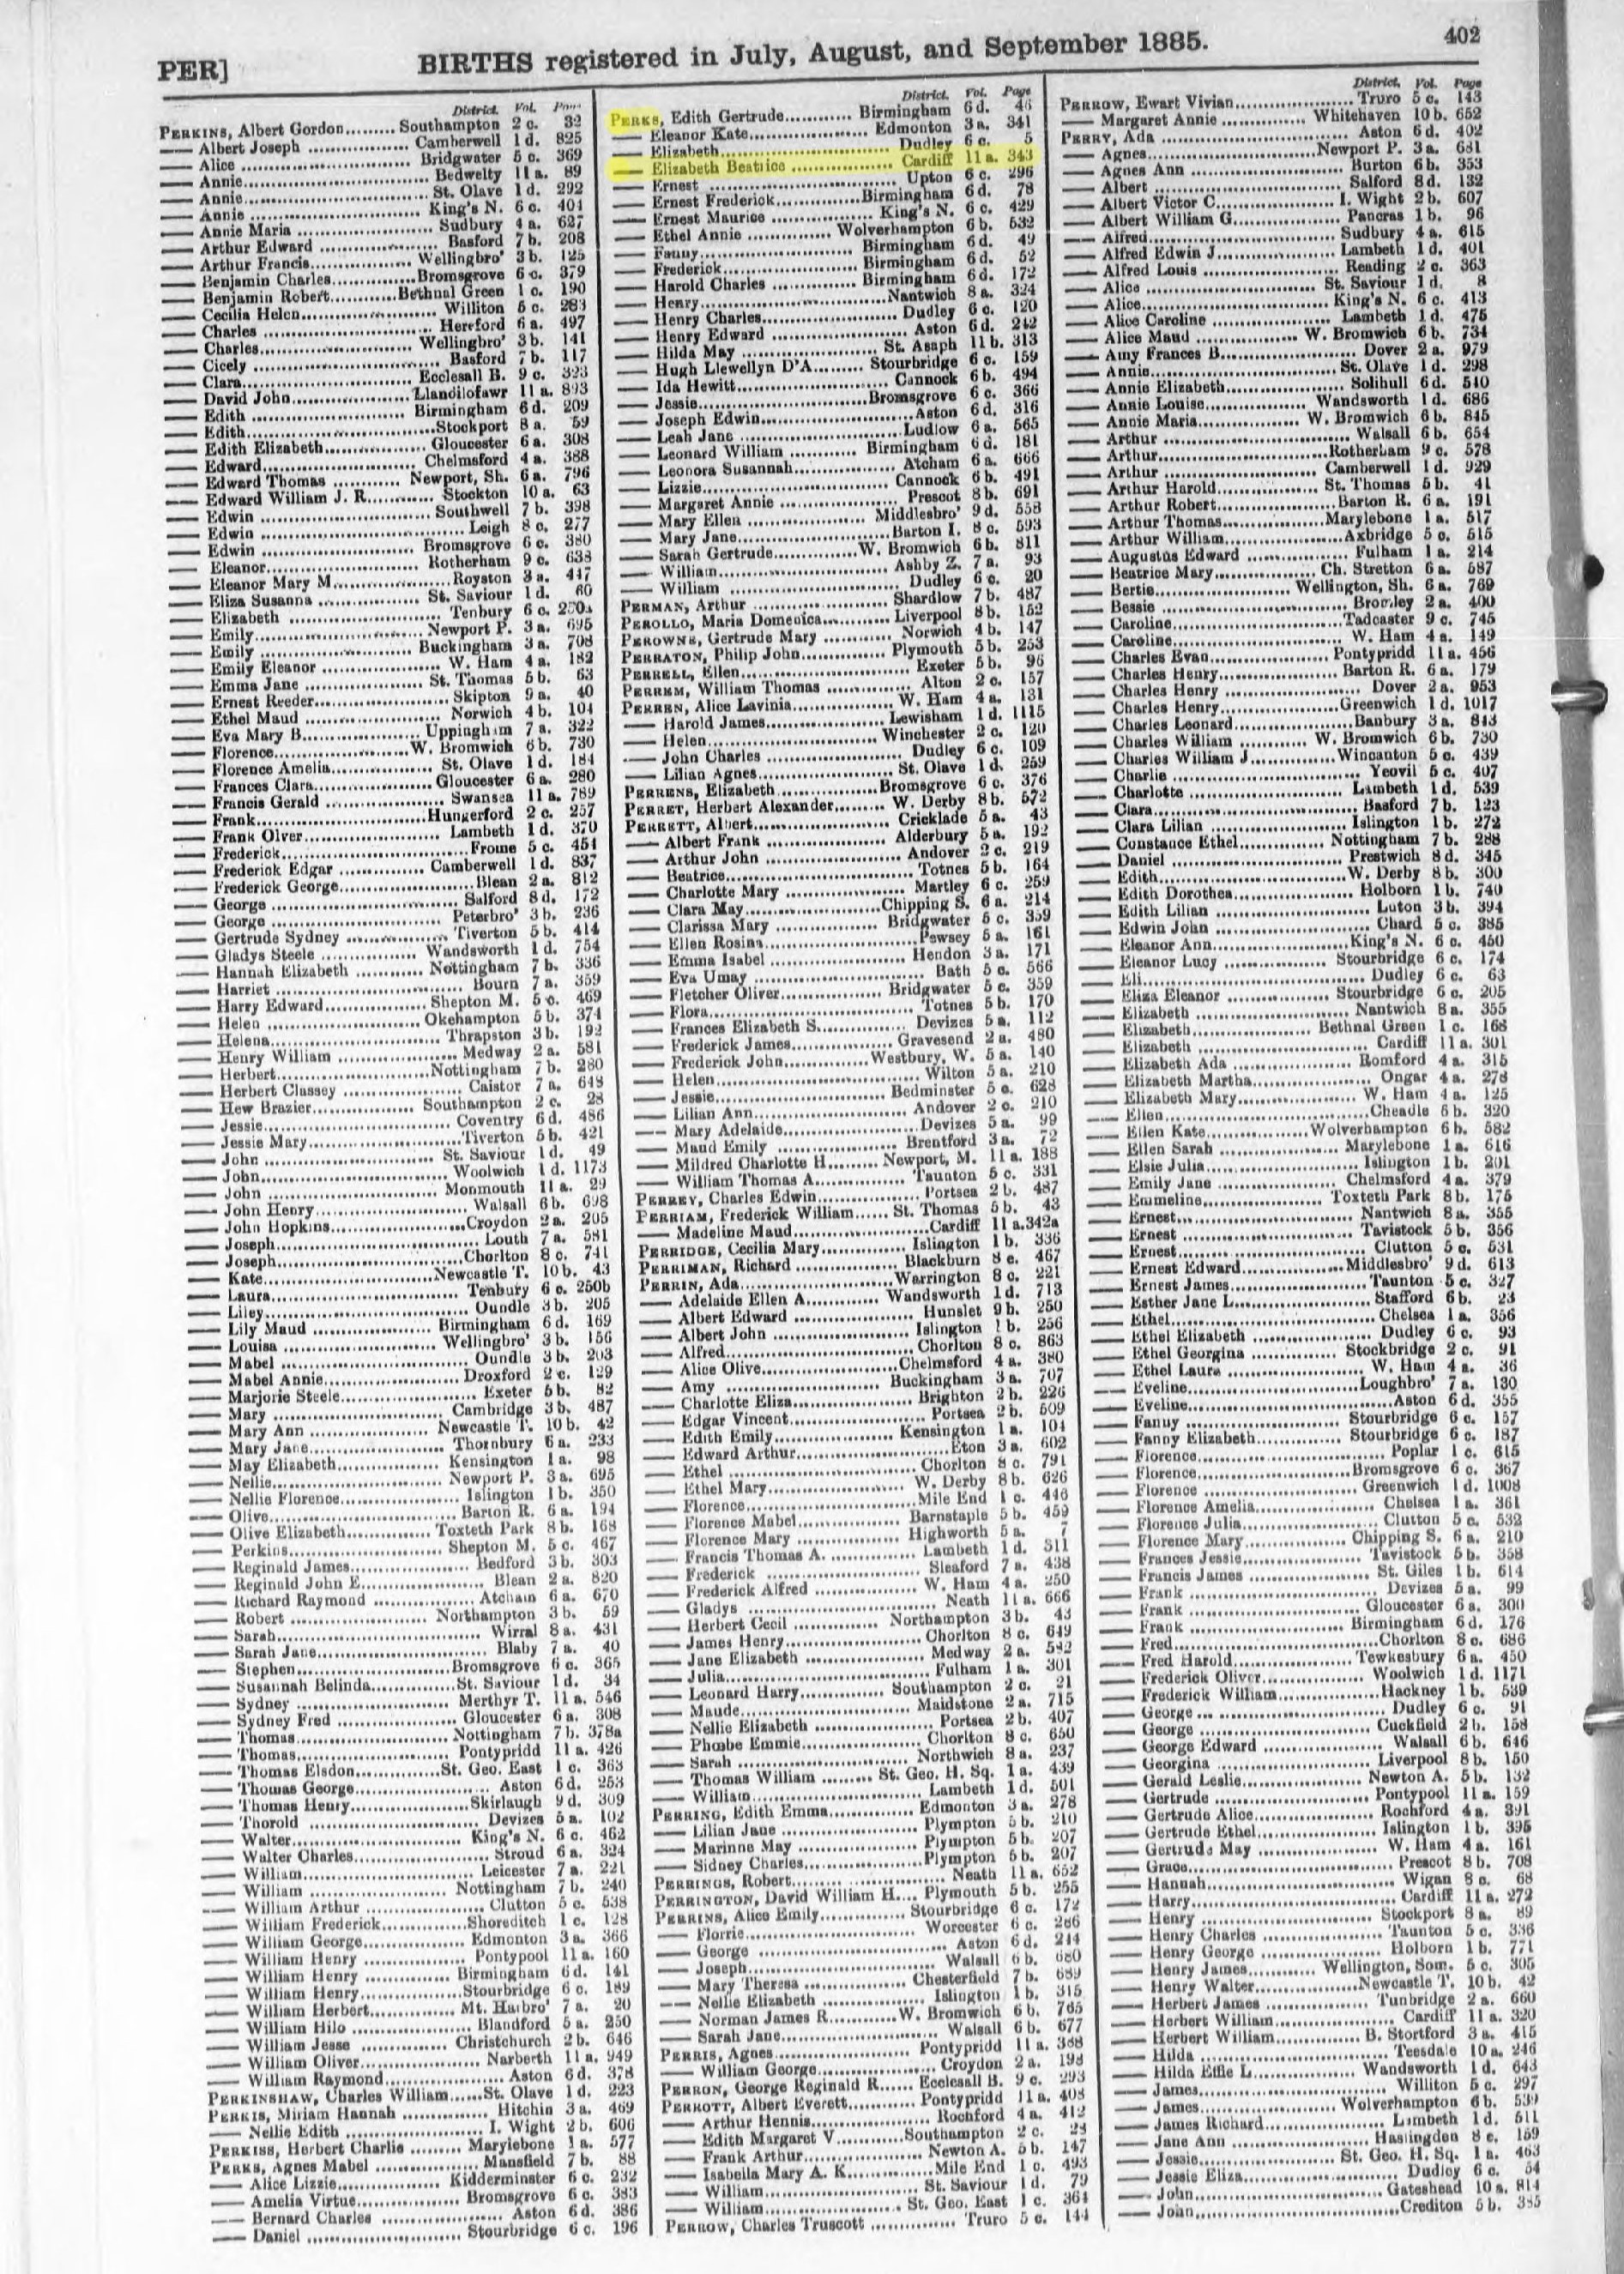 PER]
BIRTHS registered in July, August, and September 1885.
402
District. Vol. Page
PERKINS, Albert Gordon......... Southampton 2 c. 32
—— Albert Joseph ............ Camberwell 1 d. 825
—— Alice ............ Bridgwater 5 c. 369
—— Annie............ Bedwelty 11 a. 89
—— Annie............ St. Olave 1 d. 292
—— Annie ............ King's N. 6 c. 404
—— Annie Maria ............ Sudbury 4 a. 627
—— Arthur Edward ............ Basford 7 b. 208
—— Arthur Francis............ Wellingbro' 3 b. 125
—— Benjamin Charles............ Bromsgrove 6 c. 379
—— Benjamin Robert.......... Bethnal Green 1 c. 190
—— Cecilia Helen............ Williton 5 c. 283
—— Charles ............ Hereford 6 a. 497
—— Charles............ Wellingbro' 3 b. 141
—— Cicely ............ Basford 7 b. 117
—— Clara............ Ecclesall B. 9 c. 323
—— David John............ Llandilofawr 11 a. 893
—— Edith ............ Birmingham 6 d. 209
—— Edith............ Stockport 8 a. 59
—— Edith Elizabeth............ Gloucester 6 a. 308
—— Edward............ Chelmsford 4 a. 388
—— Edward Thomas ............ Newport, Sh. 6 a. 796
—— Edward William J. R.......... Stockton 10 a. 63
—— Edwin ............ Southwell 7 b. 398
—— Edwin ............ Leigh 8 c. 277
—— Edwin ............ Bromsgrove 6 c. 380
—— Eleanor............ Rotherham 9 c. 638
—— Eleanor Mary M............ Royston 3 a. 447
—— Eliza Susanna ............ St. Saviour 1 d. 60
—— Elizabeth ............ Tenbury 6 c. 250a
—— Emily............ Newport P. 3 a. 695
—— Emily ............ Buckingham 3 a. 708
—— Emily Eleanor ............ W. Ham 4 a. 182
—— Emma Jane ............ St. Thomas 5 b. 63
—— Ernest Reeder............ Skipton 9 a. 40
—— Ethel Maud ............ Norwich 4 b. 104
—— Eva Mary B............ Uppingham 7 a. 322
—— Florence............ W. Bromwich 6 b. 730
—— Florence Amelia............ St. Olave 1 d. 184
—— Frances Clara............ Gloucester 6 a. 280
—— Francis Gerald ............ Swansea 11 a. 789
—— Frank............ Hungerford 2 c. 257
—— Frank Olver............ Lambeth 1 d. 370
—— Frederick............ Frome 5 c. 454
—— Frederick Edgar ............ Camberwell 1 d. 837
—— Frederick George............ Blean 2 a. 812
—— George ............ Salford 8 d. 172
—— George ............ Peterbro' 3 b. 236
—— Gertrude Sydney ............ Tiverton 5 b. 414
—— Gladys Steele ............ Wandsworth 1 d. 754
—— Hannah Elizabeth ............ Nottingham 7 b. 336
—— Harriet ............ Bourn 7 a. 359
—— Harry Edward............ Shepton M. 5 c. 469
—— Helen ............ Okehampton 5 b. 374
—— Helena............ Thrapston 3 b. 192
—— Henry William ............ Medway 2 a. 581
—— Herbert............ Nottingham 7 b. 280
—— Herbert Classey ............ Caistor 7 a. 648
—— Hew Brazier............ Southampton 2 c. 28
—— Jessie............ Coventry 6 d. 486
—— Jessie Mary............ Tiverton 5 b. 421
—— John ............ St. Saviour 1 d. 49
—— John............ Woolwich 1 d. 1173
—— John ............ Monmouth 11 a. 29
—— John Henry............ Walsall 6 b. 698
—— John Hopkins............ Croydon 2 a. 205
—— Joseph............ Louth 7 a. 581
—— Joseph............ Chorlton 8 c. 741
—— Kate............ Newcastle T. 10 b. 43
—— Laura............ Tenbury 6 c. 250b
—— Liley............ Oundle 3 b. 205
—— Lily Maud ............ Birmingham 6 d. 169
—— Louisa ............ Wellingbro' 3 b. 156
—— Mabel ............ Oundle 3 b. 203
—— Mabel Annie............ Droxford 2 c. 129
—— Marjorie Steele............ Exeter 5 b. 82
—— Mary ............ Cambridge 3 b. 487
—— Mary Ann ............ Newcastle T. 10 b. 42
—— Mary Jane............ Thornbury 6 a. 233
—— May Elizabeth............ Kensington 1 a. 98
—— Nellie............ Newport P. 3 a. 695
—— Nellie Florence............ Islington 1 b. 350
—— Olive............ Barton R. 6 a. 194
—— Olive Elizabeth............ Toxteth Park 8 b. 168
—— Perkins............ Shepton M. 5 c. 467
—— Reginald James............ Bedford 3 b. 303
—— Reginald John E............ Blean 2 a. 820
—— Richard Raymond ............ Atcham 6 a. 670
—— Robert ............ Northampton 3 b. 59
—— Sarah............ Wirral 8 a. 431
—— Sarah Jane............ Blaby 7 a. 40
—— Stephen............ Bromsgrove 6 c. 365
—— Susannah Belinda............ St. Saviour 1 d. 34
—— Sydney ............ Merthyr T. 11 a. 546
—— Sydney Fred ............ Gloucester 6 a. 308
—— Thomas............ Nottingham 7 b. 378a
—— Thomas............ Pontypridd 11 a. 426
—— Thomas Elsdon............ St. Geo. East 1 c. 363
—— Thomas George............ Aston 6 d. 253
—— Thomas Henry............ Skirlaugh 9 d. 309
—— Thorold ............ Devizes 5 a. 102
—— Walter............ King's N. 6 c. 462
—— Walter Charles............ Stroud 6 a. 324
—— William............ Leicester 7 a. 221
—— William ............ Nottingham 7 b. 240
—— William Arthur ............ Clutton 5 c. 538
—— William Frederick............ Shoreditch 1 c. 128
—— William George............ Edmonton 3 a. 366
—— William Henry ............ Pontypool 11 a. 160
—— William Henry ............ Birmingham 6 d. 141
—— William Henry............ Stourbridge 6 c. 189
—— William Herbert............ Mt. Harbro' 7 a. 20
—— William Hilo ............ Blandford 5 a. 250
—— William Jesse ............ Christchurch 2 b. 646
—— William Oliver............ Narberth 11 a. 949
—— William Raymond............ Aston 6 d. 378
PERKINSHAW, Charles William...... St. Olave 1 d. 223
PERKIS, Miriam Hannah ............ Hitchin 3 a. 469
—— Nellie Edith ............ I. Wight 2 b. 606
PERKISS, Herbert Charlie ......... Marylebone 1 a. 577
PERKS, Agnes Mabel ............ Mansfield 7 b. 88
—— Alice Lizzie............ Kidderminster 6 c. 232
—— Amelia Virtue............ Bromsgrove 6 c. 383
—— Bernard Charles ............ Aston 6 d. 386
—— Daniel ............ Stourbridge 6 c. 196
District. Vol. Page
PERKS, Edith Gertrude............ Birmingham 6 d. 46
—— Eleanor Kate............ Edmonton 3 a. 341
—— Elizabeth............ Dudley 6 c. 5
—— Elizabeth Beatrice ............ Cardiff 11 a. 343
—— Ernest ............ Upton 6 c. 296
—— Ernest Frederick............ Birmingham 6 d. 78
—— Ernest Maurice ............ King's N. 6 c. 429
—— Ethel Annie ............ Wolverhampton 6 b. 532
—— Fanny............ Birmingham 6 d. 49
—— Frederick............ Birmingham 6 d. 52
—— Harold Charles ............ Birmingham 6 d. 172
—— Henry............ Nantwich 8 a. 324
—— Henry Charles............ Dudley 6 c. 120
—— Henry Edward ............ Aston 6 d. 242
—— Hilda May ............ St. Asaph 11 b. 313
—— Hugh Llewellyn D'A......... Stourbridge 6 c. 159
—— Ida Hewitt............ Cannock 6 b. 494
—— Jessie............ Bromsgrove 6 c. 366
—— Joseph Edwin............ Aston 6 d. 316
—— Leah Jane ............ Ludlow 6 a. 565
—— Leonard William ............ Birmingham 6 d. 181
—— Leonora Susannah............ Atcham 6 a. 666
—— Lizzie............ Cannock 6 b. 491
—— Margaret Annie ............ Prescot 8 b. 691
—— Mary Ellen ............ Middlesbro' 9 d. 558
—— Mary Jane............ Barton I. 8 c. 593
—— Sarah Gertrude............ W. Bromwich 6 b. 811
—— William............ Ashby Z. 7 a. 93
—— William ............ Dudley 6 c. 20
PERMAN, Arthur ............ Shardlow 7 b. 487
PEROLLO, Maria Domenica............ Liverpool 8 b. 152
PEROWNE, Gertrude Mary ............ Norwich 4 b. 147
PERRATON, Philip John............ Plymouth 5 b. 253
PERRELL, Ellen............ Exeter 5 b. 96
PERREM, William Thomas ............ Alton 2 c. 157
PERREN, Alice Lavinia............ W. Ham 4 a. 131
—— Harold James............ Lewisham 1 d. 1115
—— Helen............ Winchester 2 c. 120
—— John Charles ............ Dudley 6 c. 109
—— Lilian Agnes............ St. Olave 1 d. 259
PERRENS, Elizabeth............ Bromsgrove 6 c. 376
PERRET, Herbert Alexander......... W. Derby 8 b. 572
PERRETT, Albert............ Cricklade 5 a. 43
—— Albert Frank ............ Alderbury 5 a. 192
—— Arthur John ............ Andover 2 c. 219
—— Beatrice............ Totnes 5 b. 164
—— Charlotte Mary ............ Martley 6 c. 259
—— Clara May............ Chipping S. 6 a. 214
—— Clarissa Mary ............ Bridgwater 5 c. 359
—— Ellen Rosina............ Pewsey 5 a. 161
—— Emma Isabel ............ Hendon 3 a. 171
—— Eva Umay ............ Bath 5 c. 566
—— Fletcher Oliver............ Bridgwater 5 c. 359
—— Flora............ Totnes 5 b. 170
—— Frances Elizabeth S............ Devizes 5 a. 112
—— Frederick James............ Gravesend 2 a. 480
—— Frederick John............ Westbury, W. 5 a. 140
—— Helen............ Wilton 5 a. 210
—— Jessie............ Bedminster 5 c. 628
—— Lilian Ann............ Andover 2 c. 210
—— Mary Adelaide............ Devizes 5 a. 99
—— Maud Emily ............ Brentford 3 a. 72
—— Mildred Charlotte H......... Newport, M. 11 a. 188
—— William Thomas A............ Taunton 5 c. 331
PERREY, Charles Edwin............ Portsea 2 b. 487
PERRIAM, Frederick William...... St. Thomas 5 b. 43
—— Madeline Maud............ Cardiff 11 a. 342a
PERRIDGE, Cecilia Mary............ Islington 1 b. 336
PERRIMAN, Richard ............ Blackburn 8 e. 467
PERRIN, Ada............ Warrington 8 c. 221
—— Adelaide Ellen A............ Wandsworth 1 d. 713
—— Albert Edward ............ Hunslet 9 b. 250
—— Albert John ............ Islington 1 b. 256
—— Alfred............ Chorlton 8 c. 863
—— Alice Olive............ Chelmsford 4 a. 380
—— Amy ............ Buckingham 3 a. 707
—— Charlotte Eliza............ Brighton 2 b. 226
—— Edgar Vincent............ Portsea 2 b. 509
—— Edith Emily............ Kensington 1 a. 104
—— Edward Arthur............ Eton 3 a. 602
—— Ethel ............ Chorlton 8 c. 791
—— Ethel Mary............ W. Derby 8 b. 626
—— Florence............ Mile End 1 c. 446
—— Florence Mabel............ Barnstaple 5 b. 459
—— Florence Mary ............ Highworth 5 a. 7
—— Francis Thomas A. ............ Lambeth 1 d. 311
—— Frederick ............ Sleaford 7 a. 438
—— Frederick Alfred ............ W. Ham 4 a. 250
—— Gladys ............ Neath 11 a. 666
—— Herbert Cecil ............ Northampton 3 b. 43
—— James Henry............ Chorlton 8 c. 649
—— Jane Elizabeth ............ Medway 2 a. 542
—— Julia............ Fulham 1 a. 301
—— Leonard Harry............ Southampton 2 c. 21
—— Maude............ Maidstone 2 a. 715
—— Nellie Elizabeth ............ Portsea 2 b. 407
—— Phœbe Emmie............ Chorlton 8 c. 650
—— Sarah ............ Northwich 8 a. 237
—— Thomas William ......... St. Geo. H. Sq. 1 a. 439
—— William............ Lambeth 1 d. 501
PERRING, Edith Emma............ Edmonton 3 a. 278
—— Lilian Jane ............ Plympton 5 b. 210
—— Marinne May ............ Plympton 5 b. 207
—— Sidney Charles............ Plympton 5 b. 207
PERRINGS, Robert............ Neath 11 a. 652
PERRINGTON, David William H.... Plymouth 5 b. 255
PERRINS, Alice Emily............ Stourbridge 6 c. 172
—— Florrie............ Worcester 6 c. 286
—— George ............ Aston 6 d. 214
—— Joseph............ Walsall 6 b. 680
—— Mary Theresa ............ Chesterfield 7 b. 689
—— Nellie Elizabeth ............ Islington 1 b. 315
—— Norman James R............ W. Bromwich 6 b. 765
—— Sarah Jane............ Walsall 6 b. 677
PERRIS, Agnes............ Pontypridd 11 a. 368
—— William George............ Croydon 2 a. 198
PERRON, George Reginald R...... Ecclesall B. 9 c. 293
PERROTT, Albert Everett............ Pontypridd 11 a. 408
—— Arthur Hennis............ Rochford 4 a. 412
—— Edith Margaret V............ Southampton 2 c. 28
—— Frank Arthur............ Newton A. 5 b. 147
—— Isabella Mary A. K............ Mile End 1 c. 493
—— William............ St. Saviour 1 d. 79
—— William............ St. Geo. East 1 c. 364
PERROW, Charles Truscott ............ Truro 5 c. 144
District. Vol. Page
PERROW, Ewart Vivian............ Truro 5 c. 143
—— Margaret Annie ............ Whitehaven 10 b. 652
PERRY, Ada ............ Aston 6 d. 402
—— Agnes............ Newport P. 3 a. 681
—— Agnes Ann ............ Burton 6 b. 353
—— Albert ............ Salford 8 d. 132
—— Albert Victor C............ I. Wight 2 b. 607
—— Albert William G............ Pancras 1 b. 96
—— Alfred............ Sudbury 4 a. 615
—— Alfred Edwin J............ Lambeth 1 d. 401
—— Alfred Louis ............ Reading 2 c. 363
—— Alice ............ St. Saviour 1 d. 8
—— Alice............ King's N. 6 c. 413
—— Alice Caroline ............ Lambeth 1 d. 475
—— Alice Maud ............ W. Bromwich 6 b. 734
—— Amy Frances B............ Dover 2 a. 979
—— Annie............ St. Olave 1 d. 298
—— Annie Elizabeth............ Solihull 6 d. 540
—— Annie Louise............ Wandsworth 1 d. 686
—— Annie Maria............ W. Bromwich 6 b. 845
—— Arthur ............ Walsall 6 b. 654
—— Arthur............ Rotherham 9 c. 578
—— Arthur ............ Camberwell 1 d. 929
—— Arthur Harold............ St. Thomas 5 b. 41
—— Arthur Robert............ Barton R. 6 a. 191
—— Arthur Thomas............ Marylebone 1 a. 517
—— Arthur William............ Axbridge 5 c. 515
—— Augustus Edward ............ Fulham 1 a. 214
—— Beatrice Mary............ Ch. Stretton 6 a. 687
—— Bertie............ Wellington, Sh. 6 a. 769
—— Bessie ............ Bromley 2 a. 400
—— Caroline............ Tadcaster 9 c. 745
—— Caroline............ W. Ham 4 a. 149
—— Charles Evan............ Pontypridd 11 a. 456
—— Charles Henry............ Barton R. 6 a. 179
—— Charles Henry ............ Dover 2 a. 953
—— Charles Henry............ Greenwich 1 d. 1017
—— Charles Leonard............ Banbury 3 a. 843
—— Charles William ............ W. Bromwich 6 b. 730
—— Charles William J............ Wincanton 5 c. 439
—— Charlie ............ Yeovil 5 c. 407
—— Charlotte ............ Lambeth 1 d. 539
—— Clara............ Basford 7 b. 123
—— Clara Lilian ............ Islington 1 b. 272
—— Constance Ethel............ Nottingham 7 b. 288
—— Daniel ............ Prestwich 8 d. 345
—— Edith............ W. Derby 8 b. 300
—— Edith Dorothea............ Holborn 1 b. 740
—— Edith Lilian ............ Luton 3 b. 394
—— Edwin John ............ Chard 5 c. 385
—— Eleanor Ann............ King's N. 6 c. 450
—— Eleanor Lucy ............ Stourbridge 6 c. 174
—— Eli............ Dudley 6 c. 63
—— Eliza Eleanor ............ Stourbridge 6 c. 205
—— Elizabeth ............ Nantwich 8 a. 355
—— Elizabeth............ Bethnal Green 1 c. 168
—— Elizabeth ............ Cardiff 11 a. 301
—— Elizabeth Ada ............ Romford 4 a. 315
—— Elizabeth Martha............ Ongar 4 a. 278
—— Elizabeth Mary............ W. Ham 4 a. 125
—— Ellen............ Cheadle 6 b. 320
—— Ellen Kate............ Wolverhampton 6 b. 582
—— Ellen Sarah ............ Marylebone 1 a. 616
—— Elsie Julia............ Islington 1 b. 201
—— Emily Jane ............ Chelmsford 4 a. 379
—— Emmeline............ Toxteth Park 8 b. 175
—— Ernest............ Nantwich 8 a. 355
—— Ernest ............ Tavistock 5 b. 356
—— Ernest............ Clutton 5 c. 531
—— Ernest Edward............ Middlesbro' 9 d. 613
—— Ernest James............ Taunton 5 c. 327
—— Esther Jane L............ Stafford 6 b. 23
—— Ethel............ Chelsea 1 a. 356
—— Ethel Elizabeth ............ Dudley 6 c. 93
—— Ethel Georgina ............ Stockbridge 2 c. 91
—— Ethel Laura ............ W. Ham 4 a. 36
—— Eveline............ Loughbro' 7 a. 130
—— Eveline............ Aston 6 d. 355
—— Fanny ............ Stourbridge 6 c. 157
—— Fanny Elizabeth............ Stourbridge 6 c. 187
—— Florence............ Poplar 1 c. 615
—— Florence............ Bromsgrove 6 c. 367
—— Florence ............ Greenwich 1 d. 1008
—— Florence Amelia............ Chelsea 1 a. 361
—— Florence Julia............ Clutton 5 c. 532
—— Florence Mary............ Chipping S. 6 a. 210
—— Frances Jessie............ Tavistock 5 b. 358
—— Francis James ............ St. Giles 1 b. 614
—— Frank ............ Devizes 5 a. 99
—— Frank ............ Gloucester 6 a. 300
—— Frank ............ Birmingham 6 d. 176
—— Fred............ Chorlton 8 c. 686
—— Fred Harold............ Tewkesbury 6 a. 450
—— Frederick Oliver............ Woolwich 1 d. 1171
—— Frederick William............ Hackney 1 b. 539
—— George............ Dudley 6 c. 91
—— George ............ Cuckfield 2 b. 158
—— George Edward ............ Walsall 6 b. 646
—— Georgina ............ Liverpool 8 b. 150
—— Gerald Leslie............ Newton A. 5 b. 132
—— Gertrude ............ Pontypool 11 a. 159
—— Gertrude Alice............ Rochford 4 a. 391
—— Gertrude Ethel............ Islington 1 b. 395
—— Gertrude May ............ W. Ham 4 a. 161
—— Grace............ Prescot 8 b. 708
—— Hannah............ Wigan 8 c. 68
—— Harry............ Cardiff 11 a. 272
—— Henry ............ Stockport 8 a. 89
—— Henry Charles ............ Taunton 5 c. 336
—— Henry George ............ Holborn 1 b. 771
—— Henry James............ Wellington, Som. 5 c. 305
—— Henry Walter............ Newcastle T. 10 b. 42
—— Herbert James ............ Tunbridge 2 a. 660
—— Herbert William............ Cardiff 11 a. 320
—— Herbert William............ B. Stortford 3 a. 415
—— Hilda ............ Teesdale 10 a. 246
—— Hilda Effie L............ Wandsworth 1 d. 643
—— James............ Williton 5 c. 297
—— James............ Wolverhampton 6 b. 539
—— James Richard............ Lambeth 1 d. 511
—— Jane Ann ............ Haslingden 8 e. 159
—— Jessie............ St. Geo. H. Sq. 1 a. 463
—— Jessie Eliza............ Dudley 6 c. 54
—— John............ Gateshead 10 a. 814
—— John............ Crediton 5 b. 385